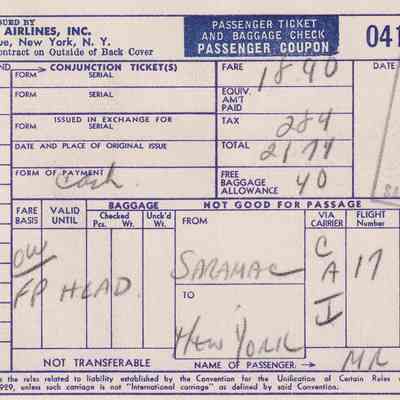 SUED BY
AIRLINES, INC.
ue, New York, N. Y.
ontract on Outside of Back Cover
PASSENGER TICKET
AND BAGGAGE CHECK
PASSENGER COUPON
041
ND CONJUNCTION TICKET(S)
FARE 1890
DATE
FORM SERIAL
EQUIV.
AM'T
PAID
FORM SERIAL
ISSUED IN EXCHANGE FOR
TAX 284
FORM SERIAL
DATE AND PLACE OF ORIGINAL ISSUE
TOTAL 2174
FORM OF PAYMENT
Cash
FREE
BAGGAGE
ALLOWANCE 40
FARE
BASIS
VALID
UNTIL
BAGGAGE
Checked
Pcs. Wt.
Unck'd
Wt.
NOT GOOD FOR PASSAGE
FROM
VIA
CARRIER
FLIGHT
Number
OW
FP HEAD
SARAMAC
C
A
I
17
TO
NEW YORK
NOT TRANSFERABLE
NAME OF PASSENGER
MR
s the rules relating to liability established by the Convention for the Unification of Certain Rules
929, unless such carriage is not "International carriage" as defined by said Convention.